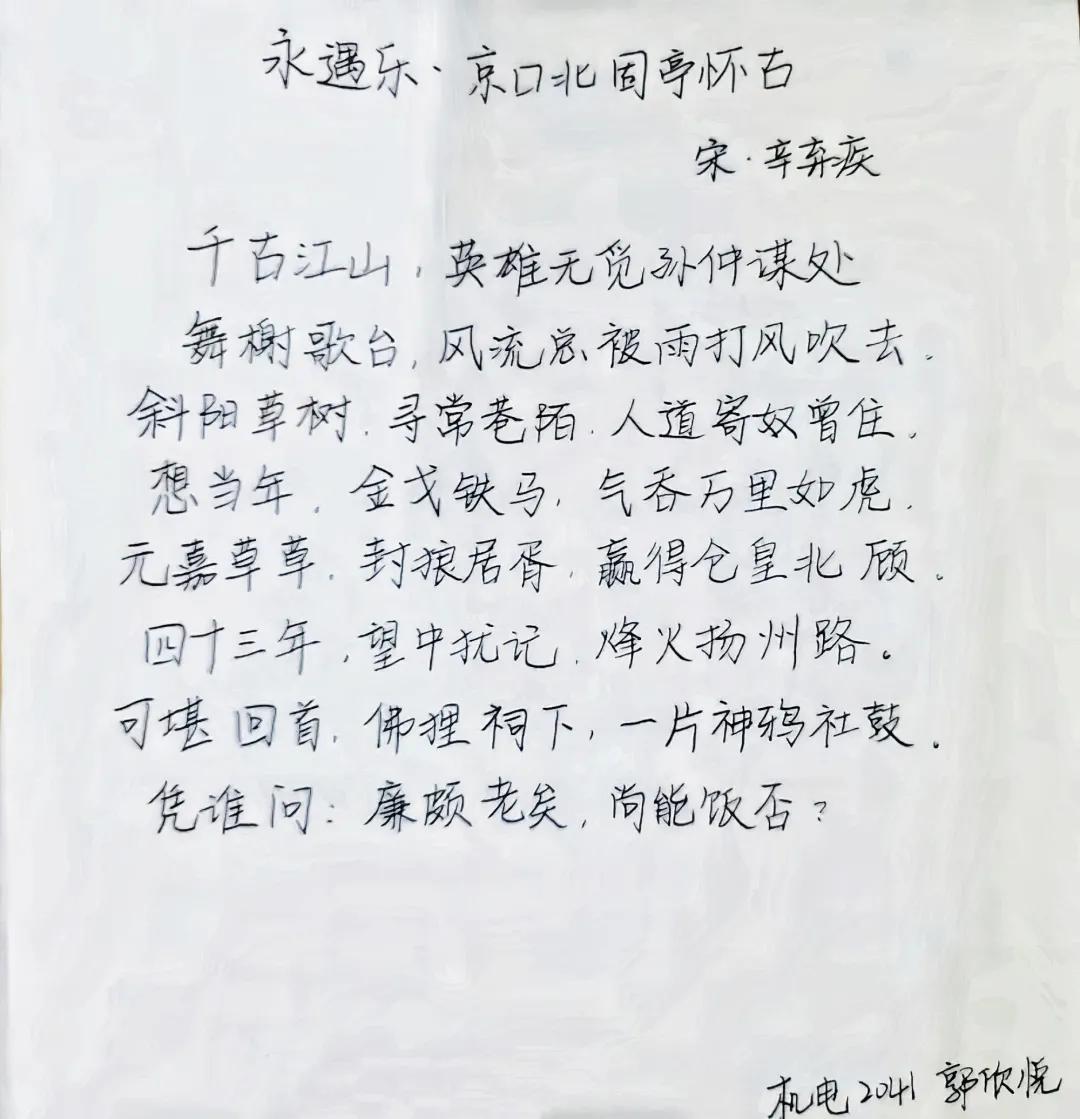 永遇乐·京口北固亭怀古
宋·辛弃疾
千古江山，英雄无觅孙仲谋处
舞榭歌台，风流总被雨打风吹去。
斜阳草树，寻常巷陌，人道寄奴曾住。
想当年，金戈铁马，气吞万里如虎。
元嘉草草，封狼居胥，赢得仓皇北顾。
四十三年，望中犹记，烽火扬州路。
可堪回首，佛狸祠下，一片神鸦社鼓。
凭谁问：廉颇老矣，尚能饭否？
机电2041 郭欣悦